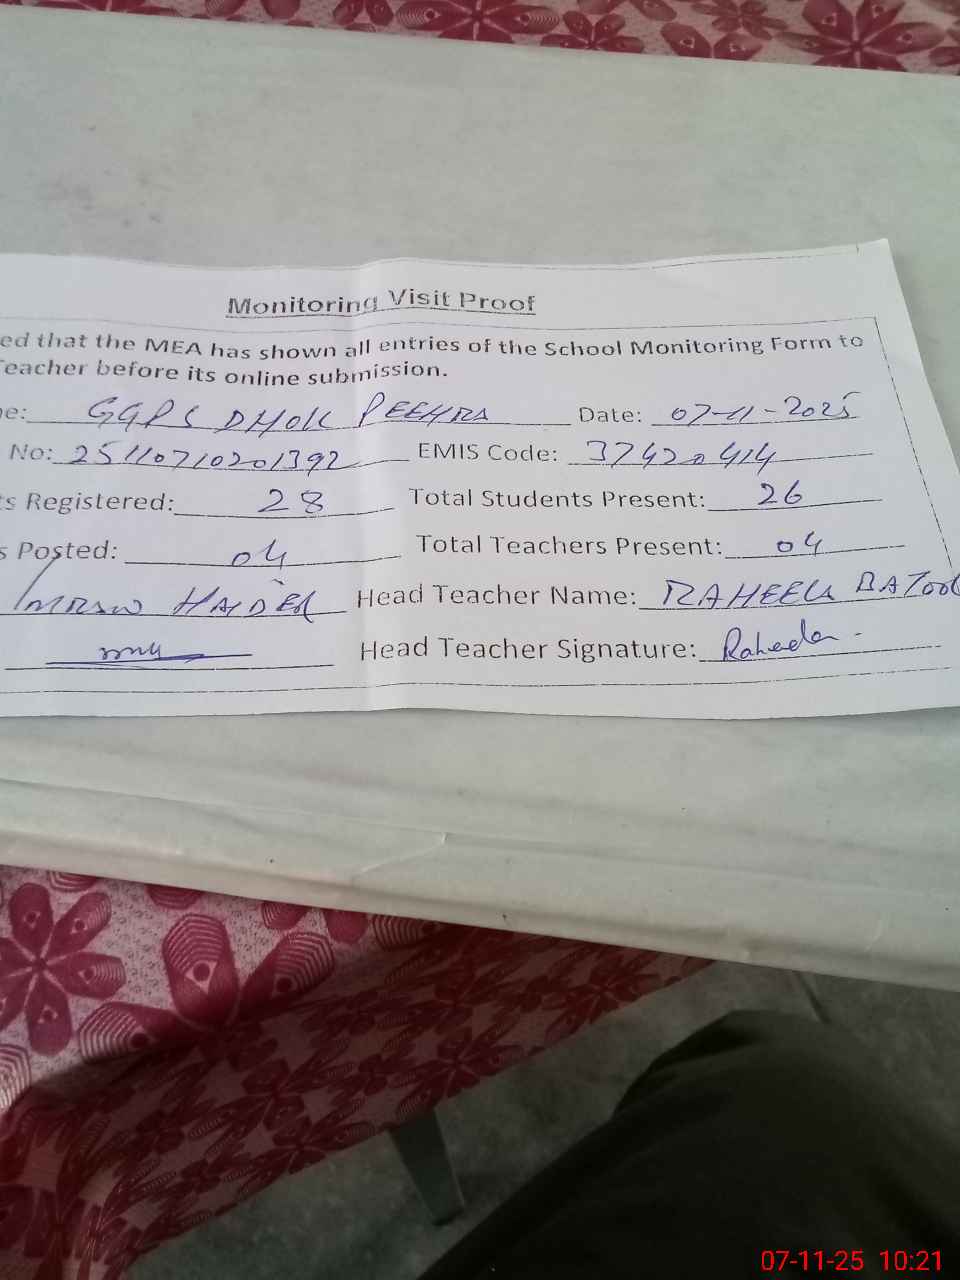 Monitoring Visit Proof
ed that the MEA has shown all entries of the School Monitoring Form to
Teacher before its online submission.
e: GGPS DHOK PEEHRA Date: 07-11-2025
No: 25110710201392 EMIS Code: 37420414
ts Registered: 28 Total Students Present: 26
s Posted: 04 Total Teachers Present: 04
HAIDER Head Teacher Name: RAHEELA BATOOL
Head Teacher Signature: Raheela
07-11-25 10:21